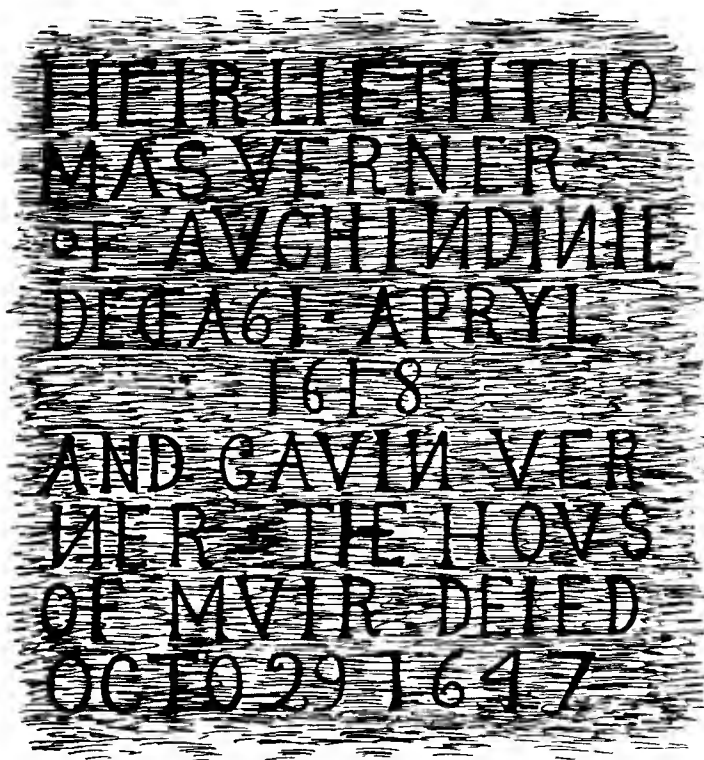 HEIR LIETH THO
MAS VERNER
OF AVCHINDINIE
DECEA61 · APRYL
1618
AND GAVIN VER
NER · THE HOVS
OF MVIR DEIED
OCTO 29 1647